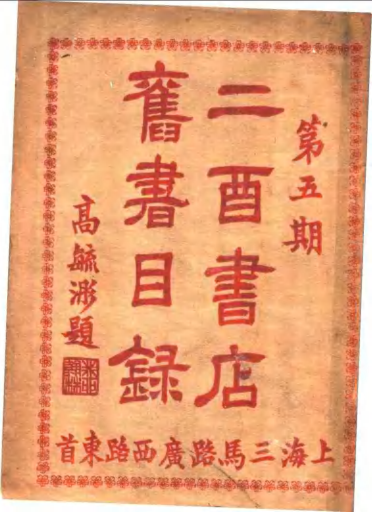 第五期
二酉書店
舊書目録
高毓浵題
上海三馬路廣西路東首